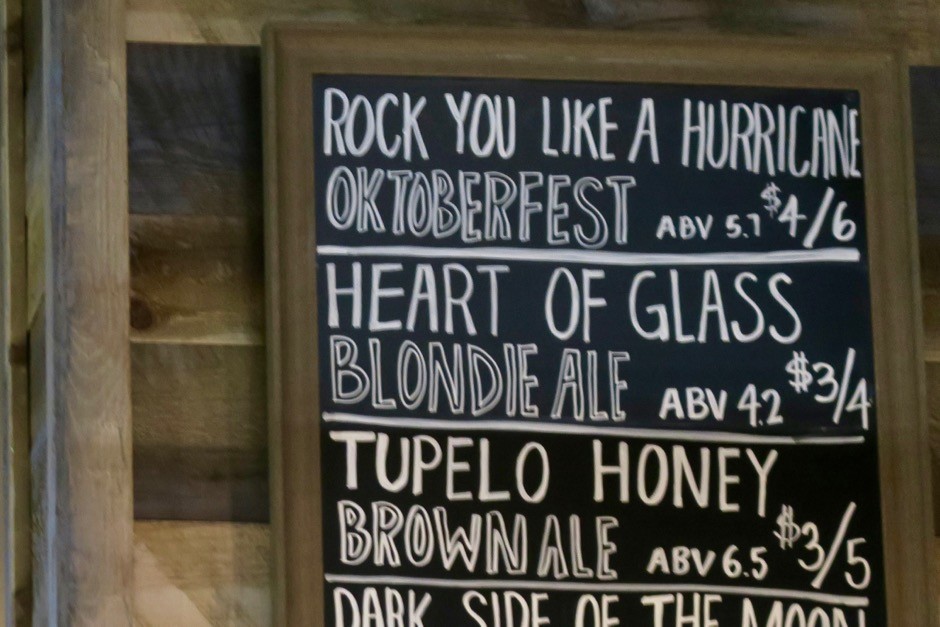 ROCK YOU LIKE A HURRICANE
OKTOBERFEST ABV 5.7 $4/6
HEART OF GLASS
BLONDIE ALE ABV 4.2 $3/4
TUPELO HONEY
BROWN ALE ABV 6.5 $3/5
DARK SIDE OF THE MOON